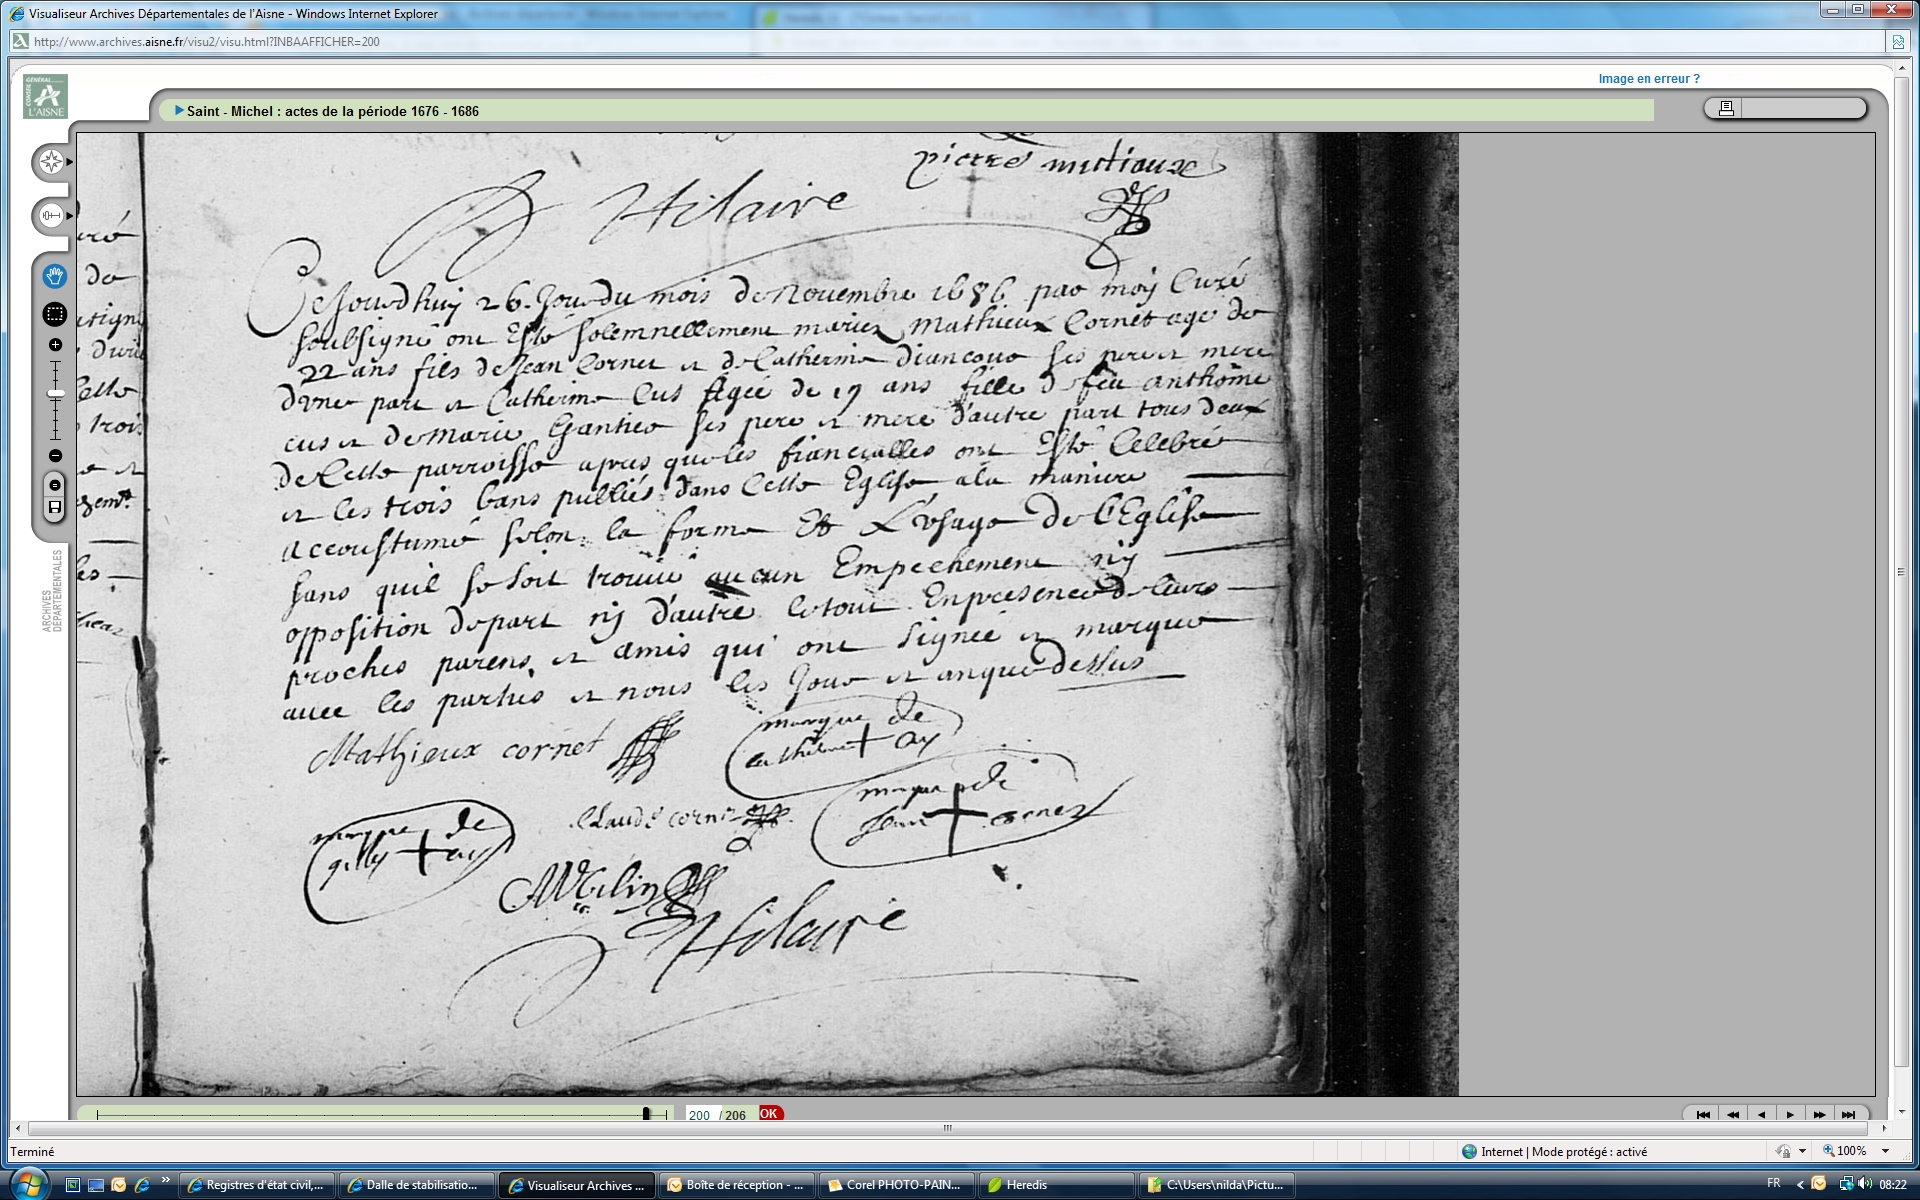 Visualiseur Archives Départementales de l'Aisne - Windows Internet Explorer
http://www.archives.aisne.fr/visu2/visu.html?INBAAFFICHER=200
Image en erreur ?
GÉNÉRAL
CONSEIL
L'AISNE
Saint - Michel : actes de la période 1676 - 1686
ARCHIVES
DÉPARTEMENTALES
pierre
Hilaire
Cejourdhuy 26. Jour du mois de Novembre 1686 par moy Curé
soubsigné ont Esté solemnellement mariez Mathieux Cornet agé de
22 ans fils de Jean Cornet et de Catherine ses pere et mere
d'vne part et Catherine Cus Agée de 19 ans fille de feu anthoine
cus et de Marie Gantier ses pere et mere d'autre part tous deux
de Cette parroisse apres que les fiancialles ont Esté Celebré
et les trois bans publiés dans Cette Eglise a la maniere
accoustumé selon la forme Et L'vsage de l'Eglise
sans quil se soit trouué aucun Empechement ny
opposition de part ny d'autre le tout En presence de leurs
proches parens et amis qui ont signée et marque
auec les parties et nous les Jour et an que dessus
Mathieux cornet
marque de
catherine + cuy
claude cornet
marque de
Jean + cornet
marque de
gilly + cuy
Hilaire
200 / 206 OK
Terminé
Internet | Mode protégé : activé
100%
Registres d'état civil,...
Dalle de stabilisatio...
Visualiseur Archives ...
Boîte de réception - ...
Corel PHOTO-PAIN...
Heredis
C:\Users\nilda\Pictu...
FR
08:22